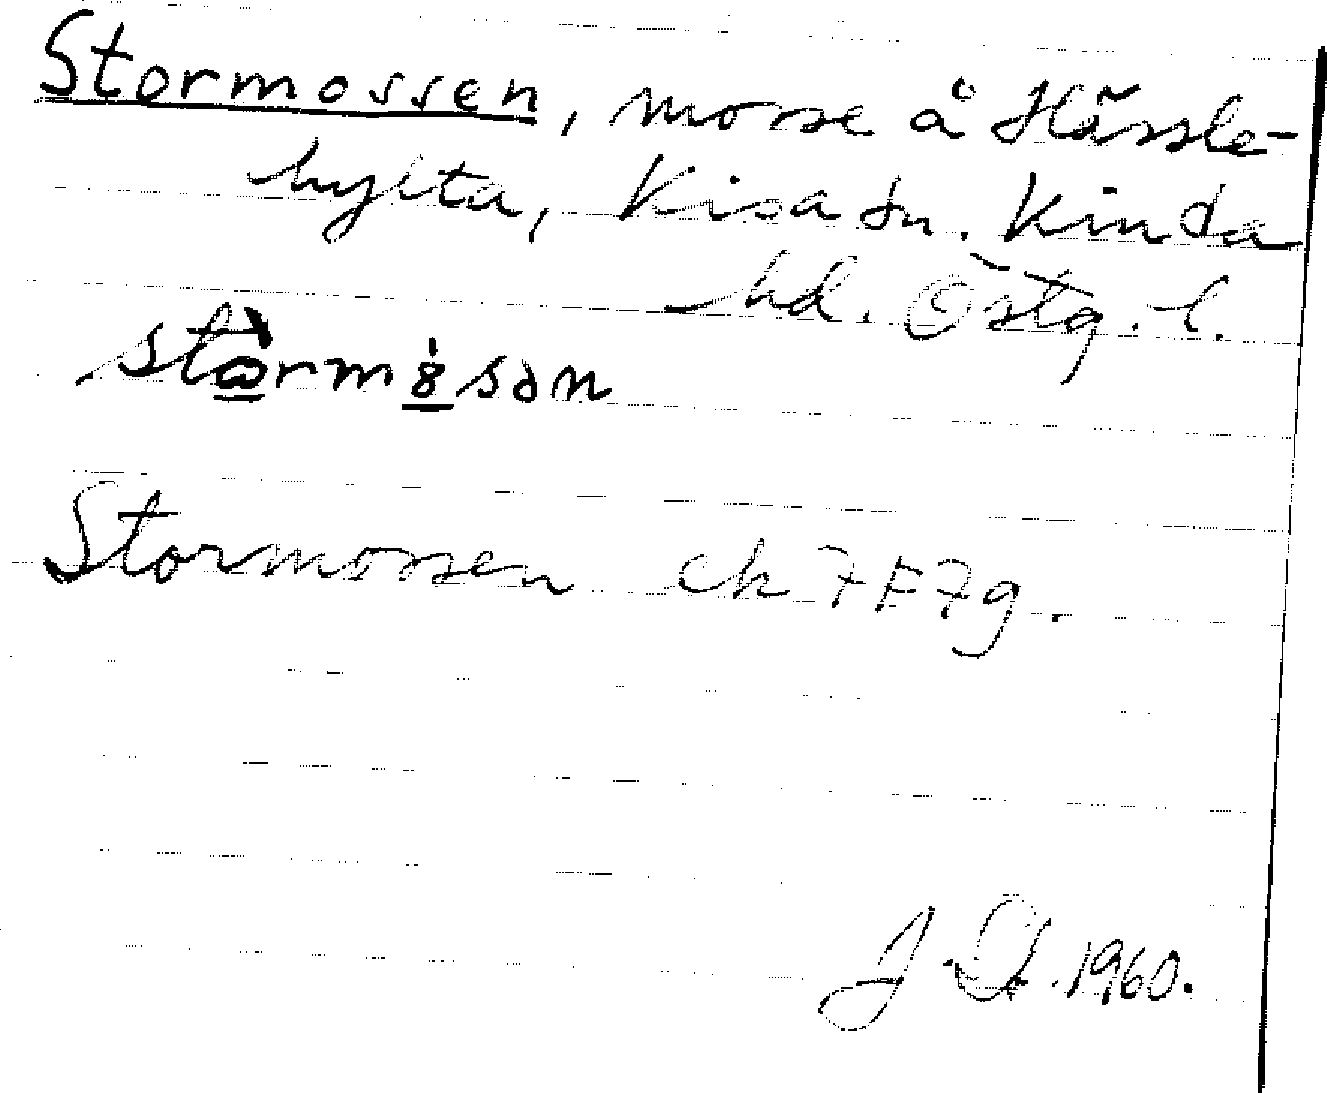 Stormossen, mosse å Hässle-
hylta, Kisa sn. Kinda
hd. Östg. l.
Stormossen ek 7F7g.
1960.